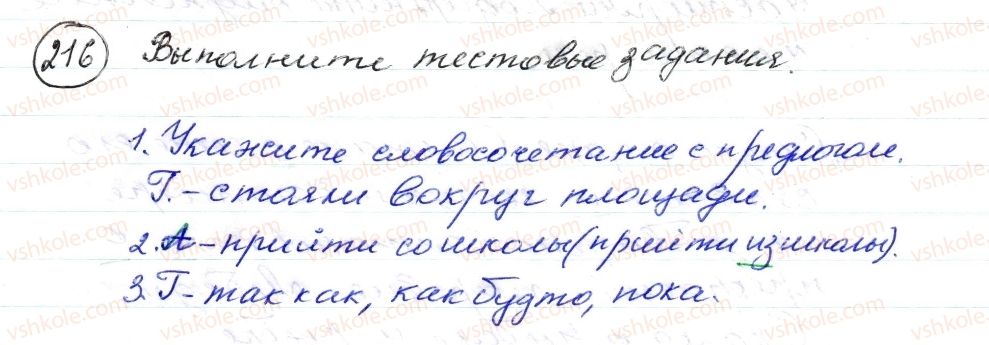 216 Выполните тестовые задания.
1. Укажите словосочетание с предлогом.
Г. - стояли вокруг площади.
2. А - прийти со школы (прийти из школы).
3. Г - так как, как будто, пока.